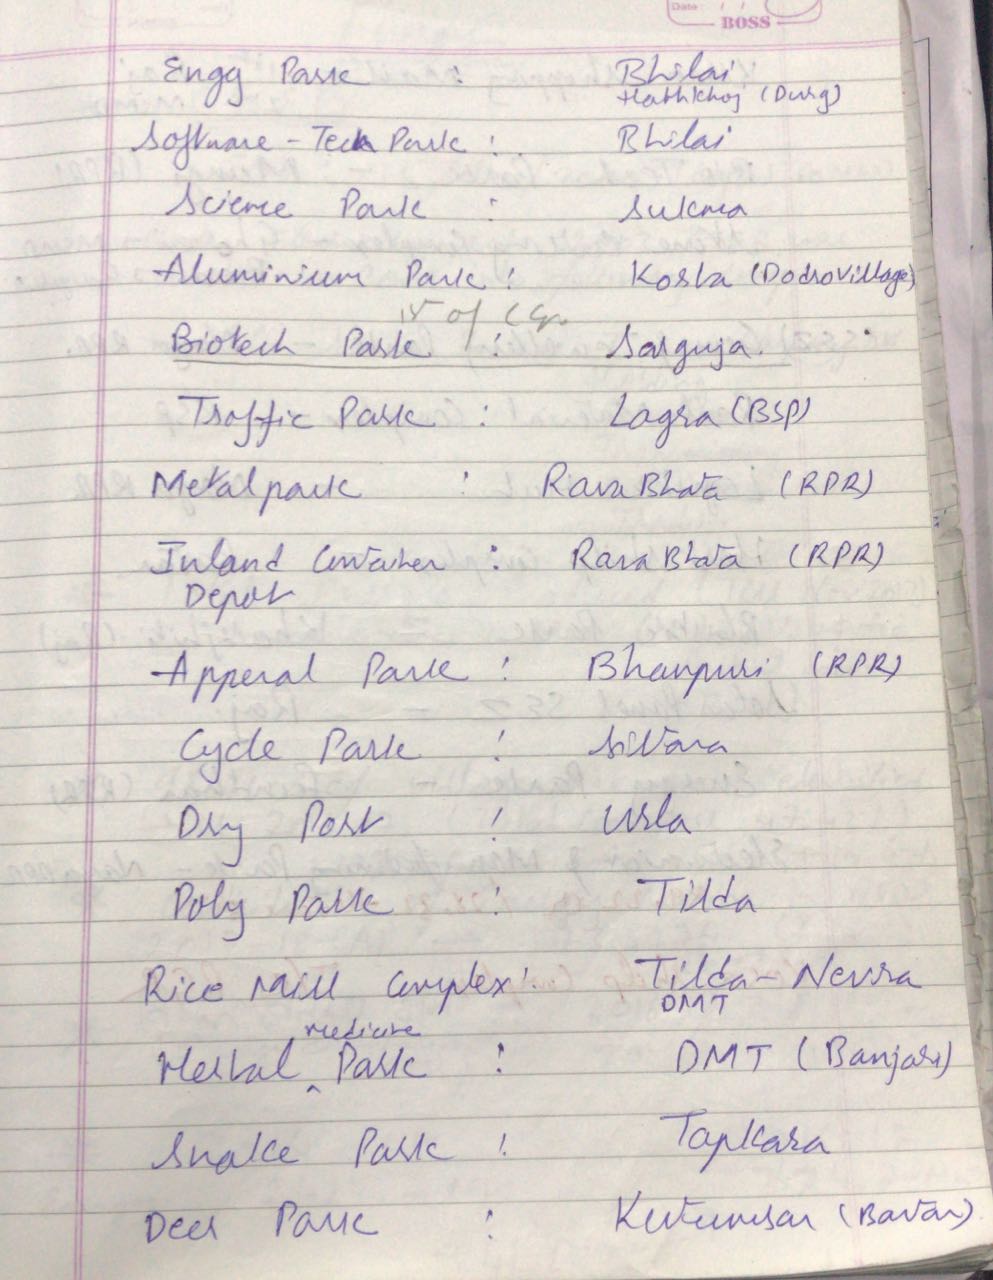 Date
BOSS
Engg Park : Bhilai
Hathkhoj (Durg)
Software - Tech Park : Bhilai
Science Park : Sukma
Aluminium Park : Korba (Dodro village)
1st of CG
Biotech Park : Sarguja.
Traffic Park : Lagra (BSP)
Metal park : Rava Bhata (RPR)
Inland Container : Rava Bhata (RPR)
Depot
Apperal Park : Bhanpuri (RPR)
Cycle Park : Siltara
Dry Port : Urla
Poly Park : Tilda
Rice Mill Complex : Tilda - Nevra
DMT
medicine
Herbal ^ Park : DMT (Banjari)
Snake Park : Tapkara
Deer Park : Kutumsar (Bastar)